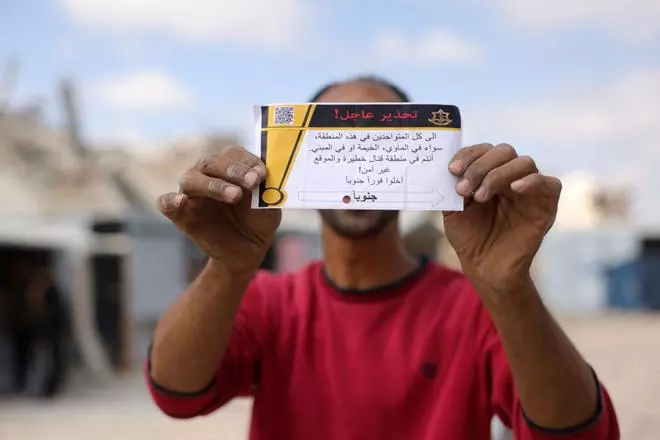 تحذير عاجل!
الى كل المتواجدين في هذه المنطقة،
سواء في المأوي، الخيمة او في المبني.
أنتم في منطقة قتال خطيرة والموقع
غير امن!
أخلوا فوراً جنوباً
جنوباً